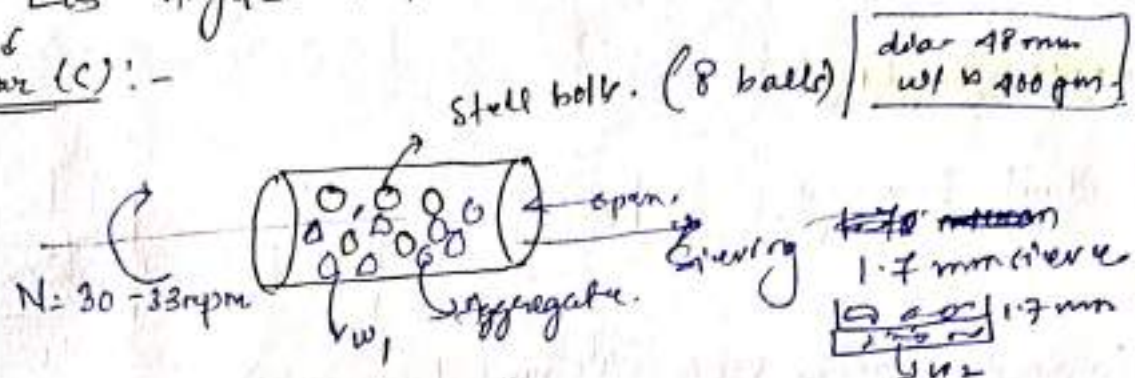 (C):-
Stell balls. (8 balls)
dia- 48 mm
wt 400 gm
open.
N= 30 -33rpm
w₁
Aggregate.
Sieving
1.7 mm sieve
1.7 mm
w₂